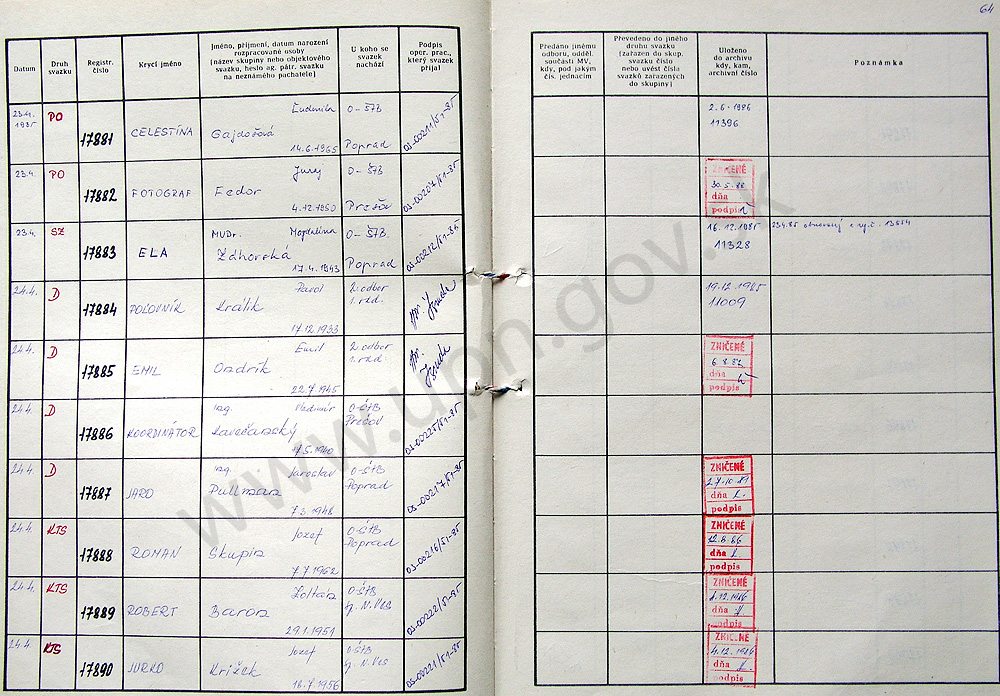 64
Datum
Druh
svazku
Registr.
číslo
Krycí jméno
Jméno, příjmení, datum narození
rozpracované osoby
(název skupiny nebo objektového
svazku, heslo ag. pátr. svazku
na neznámého pachatele)
U koho se
svazek
nachází
Podpis
oper. prac.,
který svazek
přijal
Předáno jinému
odboru, odděl.
součásti MV,
kdy, pod jakým
čís. jednacím
Převedeno do jiného
druhu svazku
(zařazen do skup.
svazku číslo
nebo uvést čísla
svazků zařazených
do skupiny)
Uloženo
do archivu
kdy, kam,
archivní číslo
Poznámka
23.4.
1985
PO
17881
CELESTÍNA
Ľudmila
Gajdošová
14.6.1965
O-ŠTB
Poprad
OS-00211/51-85
2.6.1986
11396
23.4.
PO
17882
FOTOGRAF
Juraj
Fedor
4.12.1950
O-ŠTB
Prešov
OS-00207/51-85
ZNIČENÉ
30.5.88
dňa
podpis
23.4.
SZ
17883
ELA
MUDr. Magdaléna
Ždhorská
17.4.1943
O-ŠTB.
Poprad
OS-00212/51-85
16.12.1985
11328
24.4.
D
17884
POĽOVNÍK
Pavol
Králik
17.12.1933
2. odbor
1. odd.
19.12.1985
11009
24.4.
D
17885
EMIL
Emil
Ondrík
22.7.1945
2. odbor
1. odd.
ZNIČENÉ
dňa
podpis
24.4.
D
17886
KOORDINÁTOR
Ing. Vladimír
17.5.1940
O-ŠTB
Prešov
OS-00225/51-85
24.4.
D
17887
JARO
Ing. Jaroslav
Pullman
7.3.1948
O-ŠTB
Poprad
OS-00217/51-85
ZNIČENÉ
dňa
podpis
24.4.
KTS
17888
ROMAN
Jozef
Skupin
7.7.1962
O-ŠTB
Poprad
OS-00216/51-85
ZNIČENÉ
dňa
podpis
24.4.
KTS
17889
ROBERT
Zoltán
Baron
29.1.1951
O-ŠTB
Sp. N. Ves
OS-00222/51-85
ZNIČENÉ
dňa
podpis
24.4.
KTS
17890
JURKO
Jozef
Križek
18.7.1956
O-ŠTB
Sp. N. Ves
OS-00221/51-85
ZNIČENÉ
4.12.1986
dňa
podpis
www.upn.gov.sk